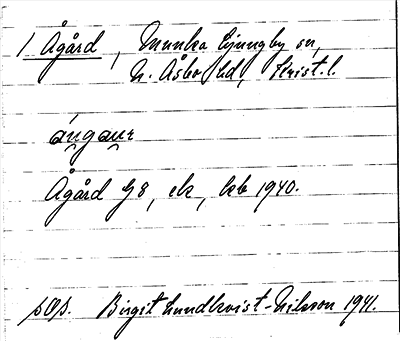 1 Ågård, Munka Ljungby sn,
N. Åsbo hd, Krist. l.
Ågård G8, ek, kb 1940.
Birgit Lundkvist-Nilsson 1941.